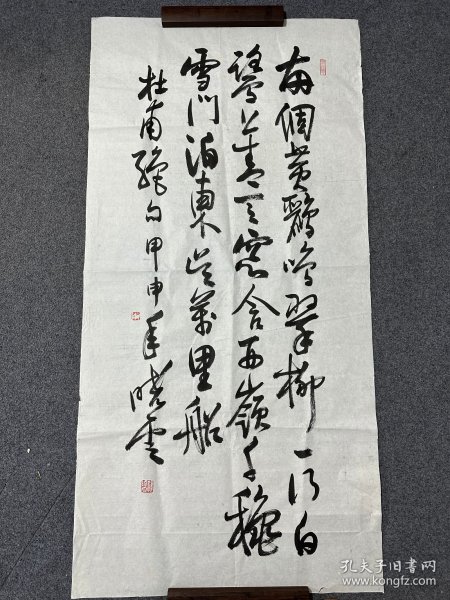 两個黄鸝鳴翠柳一行白
鷺上青天窓含西嶺千秋
雪門泊東吴萬里船
杜甫绝句甲申年晓雲
孔夫子旧书网
www.kongfz.com